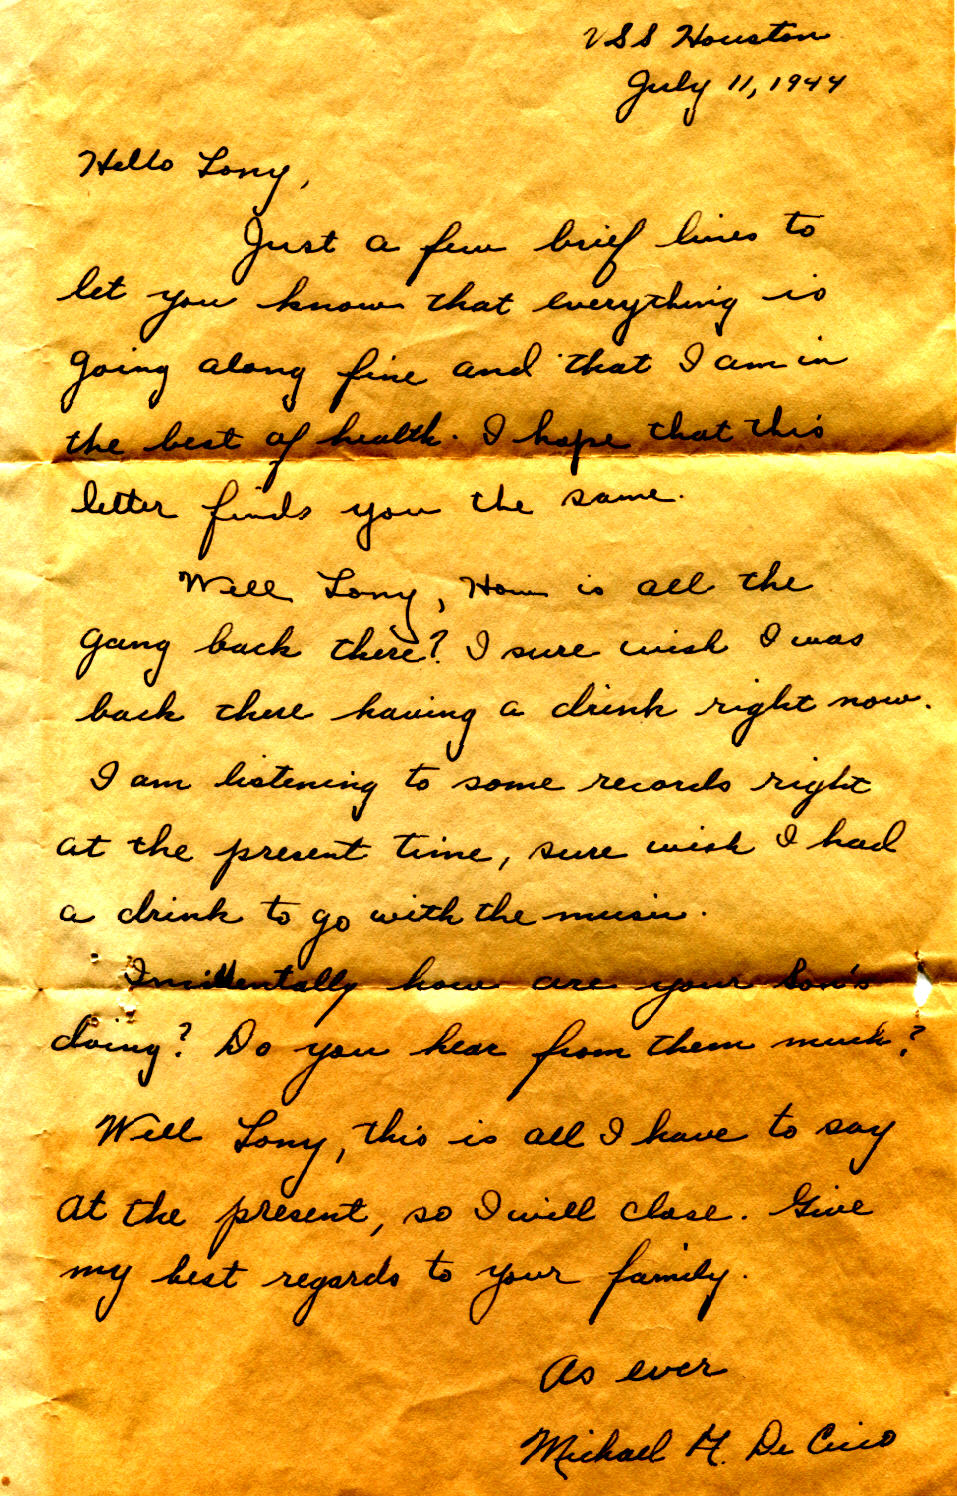 USS Houston
July 11, 1944
Hello Tony,
Just a few brief lines to
let you know that everything is
going along fine and that I am in
the best of health. I hope that this
letter finds you the same.
Well Tony, How is all the
gang back there? I sure wish I was
back there having a drink right now.
I am listening to some records right
at the present time, sure wish I had
a drink to go with the music.
Incidentally how are your Son's
doing? Do you hear from them much?
Well Tony, this is all I have to say
at the present, so I will close. Give
my best regards to your family.
As ever
Michael H. De Cicco